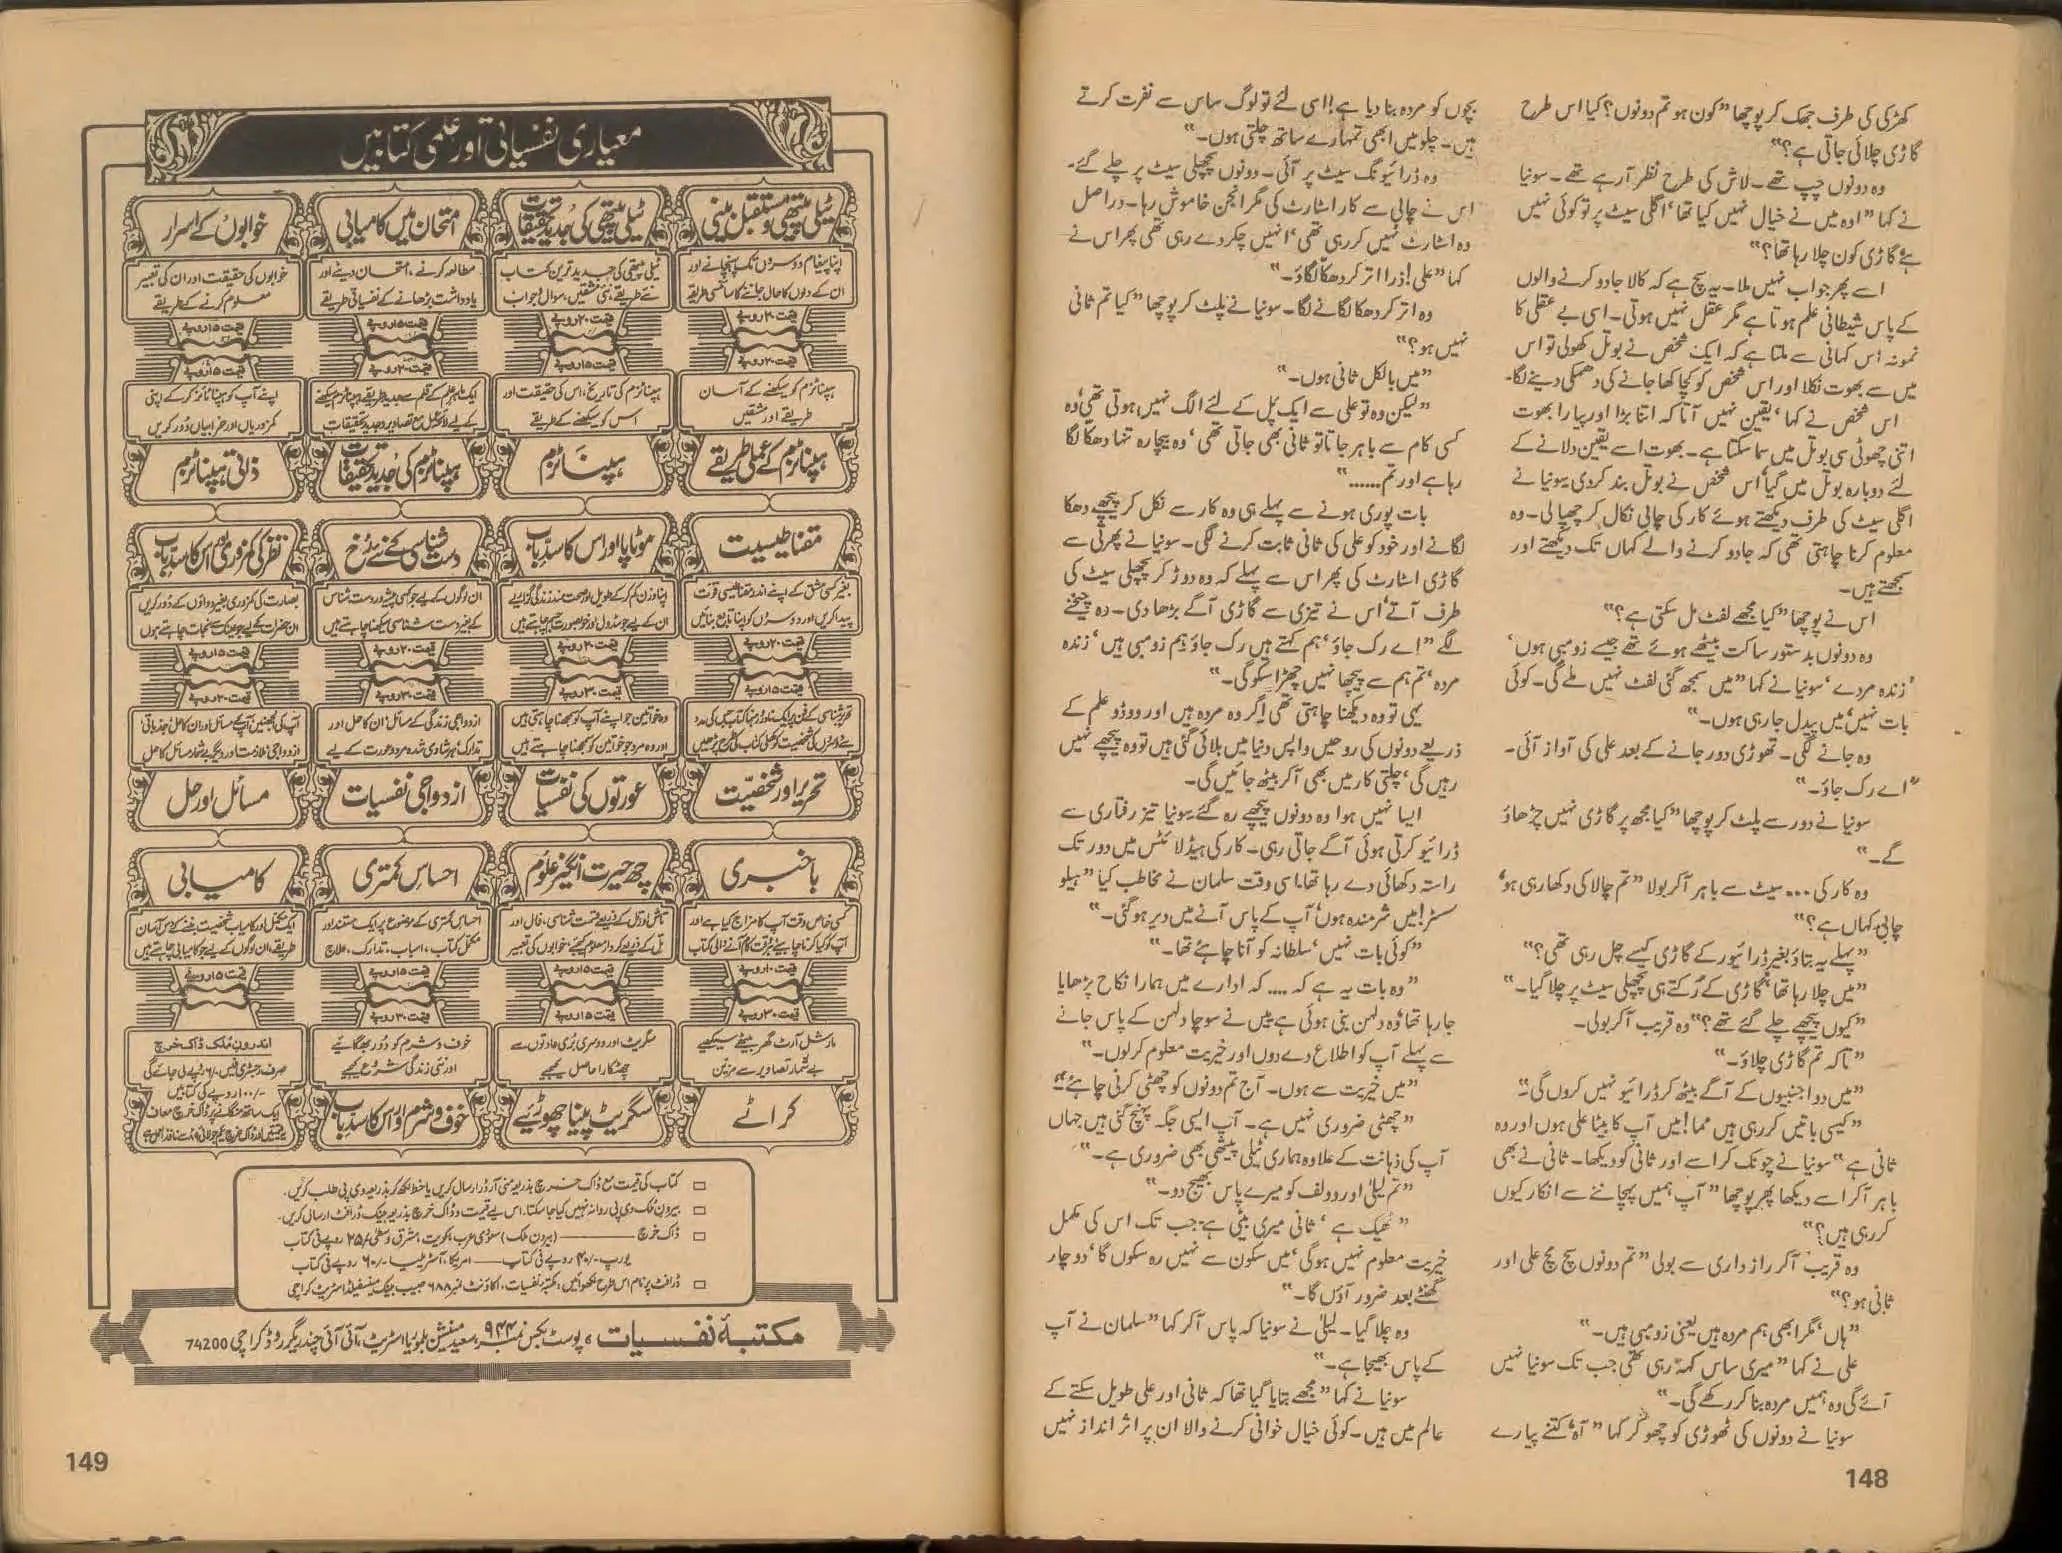 کھڑکی کی طرف جھک کر پوچھا ”کون ہو تم دونوں؟ کیا اس طرح
گاڑی چلائی جاتی ہے؟“
وہ دونوں چپ تھے۔ لاش کی طرح نظر آ رہے تھے۔ سونیا
نے کہا ”اوہ میں نے خیال نہیں کیا تھا‘ اگلی سیٹ پر تو کوئی نہیں
ہے گاڑی کون چلا رہا تھا؟“
اسے پھر جواب نہیں ملا۔ یہ سچ ہے کہ کالا جادو کرنے والوں
کے پاس شیطانی علم ہوتا ہے مگر عقل نہیں ہوتی۔ اسی بے عقلی کا
نمونہ اس کہانی سے ملتا ہے کہ ایک شخص نے بوتل کھولی تو اس
میں سے بھوت نکلا اور اس شخص کو کچا کھا جانے کی دھمکی دینے لگا۔
اس شخص نے کہا‘ یقین نہیں آتا کہ اتنا بڑا اور پیارا بھوت
اتنی چھوٹی سی بوتل میں سما سکتا ہے۔ بھوت اسے یقین دلانے کے
لئے دوبارہ بوتل میں گیا‘ اس شخص نے بوتل بند کر دی۔ سونیا نے
اگلی سیٹ کی طرف دیکھتے ہوئے کار کی چابی نکال کر چھپا لی۔ وہ
معلوم کرنا چاہتی تھی کہ جادو کرنے والے کہاں تک دیکھتے اور
سمجھتے ہیں۔
اس نے پوچھا ”کیا مجھے لفٹ مل سکتی ہے؟“
وہ دونوں بدستور ساکت بیٹھے ہوئے تھے جیسے زومبی ہوں‘
زندہ مردے‘ سونیا نے کہا ”میں سمجھ گئی لفٹ نہیں ملے گی۔ کوئی
بات نہیں‘ میں پیدل جا رہی ہوں۔“
وہ جانے لگی۔ تھوڑی دور جانے کے بعد علی کی آواز آئی۔
”اے رک جاؤ۔“
سونیا نے دور سے پلٹ کر پوچھا ”کیا مجھ پر گاڑی نہیں چڑھاؤ
گے۔“
وہ کار کی ... سیٹ سے باہر آ کر بولا ”تم چالاکی دکھا رہی ہو‘
چابی کہاں ہے؟“
”پہلے یہ بتاؤ بغیر ڈرائیور کے گاڑی کیسے چل رہی تھی؟“
”میں چلا رہا تھا‘ گاڑی کے رُکتے ہی پچھلی سیٹ پر چلا گیا۔“
”کیوں پیچھے چلے گئے تھے؟“ وہ قریب آ کر بولی۔
”تاکہ تم گاڑی چلاؤ۔“
”میں دو اجنبیوں کے آگے بیٹھ کر ڈرائیو نہیں کروں گی۔“
”کیسی باتیں کر رہی ہیں مما! میں آپ کا بیٹا علی ہوں اور وہ
ثانی ہے“ سونیا نے چونک کر اسے اور ثانی کو دیکھا۔ ثانی نے بھی
باہر آ کر اسے دیکھا پھر پوچھا ”آپ ہمیں پہچاننے سے انکار کیوں
کر رہی ہیں؟“
وہ قریب آ کر رازداری سے بولی ”تم دونوں سچ مچ علی اور
ثانی ہو؟“
”ہاں‘ مگر ابھی ہم مردہ ہیں یعنی زومبی ہیں۔“
علی نے کہا ”میری ساس کہہ رہی تھی جب تک سونیا نہیں
آئے گی وہ ہمیں مردہ بنا کر رکھے گی۔“
سونیا نے دونوں کی ٹھوڑی کو چھو کر کہا ”آہ‘ کتنے پیارے
بچوں کو مردہ بنا دیا ہے! اسی لئے تو لوگ ساس سے نفرت کرتے
ہیں۔ چلو میں ابھی تمہارے ساتھ چلتی ہوں۔“
وہ ڈرائیونگ سیٹ پر آئی۔ دونوں پچھلی سیٹ پر چلے گئے۔
اس نے چابی سے کار اسٹارٹ کی مگر انجن خاموش رہا۔ دراصل
وہ اسٹارٹ نہیں کر رہی تھی‘ انہیں چکر دے رہی تھی پھر اس نے
کہا ”علی! ذرا اتر کر دھکا لگاؤ۔“
وہ اتر کر دھکا لگانے لگا۔ سونیا نے پلٹ کر پوچھا ”کیا تم ثانی
نہیں ہو؟“
”میں بالکل ثانی ہوں۔“
”لیکن وہ تو علی سے ایک پل کے لئے الگ نہیں ہوتی تھی‘ وہ
کسی کام سے باہر جاتا تو ثانی بھی جاتی تھی‘ وہ بیچارہ تنہا دھکا لگا
رہا ہے اور تم......“
بات پوری ہونے سے پہلے ہی وہ کار سے نکل کر پیچھے دھکا
لگانے اور خود کو علی کی ثانی ثابت کرنے لگی۔ سونیا نے پھرتی سے
گاڑی اسٹارٹ کی پھر اس سے پہلے کہ وہ دوڑ کر پچھلی سیٹ کی
طرف آتے‘ اس نے تیزی سے گاڑی آگے بڑھا دی۔ وہ چیخنے
لگے ”اے رک جاؤ‘ ہم کہتے ہیں رک جاؤ‘ ہم زومبی ہیں‘ زندہ
مردہ‘ تم ہم سے پیچھا نہیں چھڑا سکو گی۔“
یہی تو وہ دیکھنا چاہتی تھی‘ اگر وہ مردہ ہیں اور ووڈو علم کے
ذریعے دونوں کی روحیں واپس دنیا میں بلائی گئی ہیں تو وہ پیچھے نہیں
رہیں گی‘ چلتی کار میں بھی آ کر بیٹھ جائیں گی۔
ایسا نہیں ہوا وہ دونوں پیچھے رہ گئے۔ سونیا تیز رفتاری سے
ڈرائیو کرتی ہوئی آگے جاتی رہی۔ کار کی ہیڈلائٹس میں دور تک
راستہ دکھائی دے رہا تھا۔ اسی وقت سلمان نے مخاطب کیا ”ہیلو
سسٹر! میں شرمندہ ہوں‘ آپ کے پاس آنے میں دیر ہو گئی۔“
”کوئی بات نہیں‘ سلطانہ کو آنا چاہئے تھا۔“
”وہ بات یہ ہے کہ .... کہ ادارے میں ہمارا نکاح پڑھایا
جا رہا تھا‘ وہ دلہن بنی ہوئی ہے‘ میں نے سوچا دلہن کے پاس جانے
سے پہلے آپ کو اطلاع دے دوں اور خیریت معلوم کر لوں۔“
”میں خیریت سے ہوں۔ آج تم دونوں کو چھٹی کرنی چاہئے۔“
”چھٹی ضروری نہیں ہے۔ آپ ایسی جگہ پہنچ گئی ہیں جہاں
آپ کی ذہانت کے علاوہ ہماری ٹیلی پیتھی بھی ضروری ہے۔“
”تم لیلیٰ اور وولف کو میرے پاس بھیج دو۔“
”ٹھیک ہے‘ ثانی میری بیٹی ہے۔ جب تک اس کی مکمل
خیریت معلوم نہیں ہوگی‘ میں سکون سے نہیں رہ سکوں گا‘ دو چار
گھنٹے بعد ضرور آؤں گا۔“
وہ چلا گیا۔ لیلیٰ نے سونیا کہ پاس آ کر کہا ”سلمان نے آپ
کے پاس بھیجا ہے۔“
سونیا نے کہا ”مجھے بتایا گیا تھا کہ ثانی اور علی طویل سکتے کے
عالم میں ہیں۔ کوئی خیال خوانی کرنے والا ان پر اثر انداز نہیں
148
معیاری نفسیاتی اور علمی کتابیں
ٹیلی پیتھی و مستقبل بینی
اپنا پیغام دوسروں تک پہنچانے اور
ان کے دلوں کا حال جاننے کا سائنسی طریقہ
قیمت ۲۰ روپے
ٹیلی پیتھی کی جدید تحقیقات
ٹیلی پیتھی کی جدید ترین کتاب
نئے طریقے، نئی مشقیں، سوال و جواب
قیمت ۲۰ روپے
امتحان میں کامیابی
مطالعہ کرنے، امتحان دینے اور
یادداشت بڑھانے کے نفسیاتی طریقے
قیمت ۱۵ روپے
خوابوں کے اسرار
خوابوں کی حقیقت اور ان کی تعبیر
معلوم کرنے کے طریقے
قیمت ۱۵ روپے
قیمت ۲۰ روپے
ہپناٹزم کو سیکھنے کے آسان
طریقے اور مشقیں
ہپناٹزم کے عملی طریقے
قیمت ۱۵ روپے
ہپناٹزم کی تاریخ، اس کی حقیقت اور
اس کو سیکھنے کے طریقے
ہپناٹزم
قیمت ۲۰ روپے
ہپناٹزم کی جدید تحقیقات
قیمت ۱۵ روپے
اپنے آپ کو ہپناٹائز کر کے اپنی
کمزوریاں اور خرابیاں دور کریں
ذاتی ہپناٹزم
مقناطیسیت
بغیر کسی مشق کے اپنے اندر مقناطیسی قوت
پیدا کریں اور دوسروں کو اپنا تابع بنائیں
قیمت ۲۰ روپے
موٹاپا اور اس کا سدِّباب
اپنا وزن کم کر کے طویل اور صحت مند زندگی گزاریے
ان کے لیے جو سڈول اور خوبصورت جسم چاہتے ہیں
قیمت ۲۰ روپے
دست شناسی کے نئے رُخ
ان لوگوں کے لیے جو کسی پیشہ ور دست شناس
کے بغیر دست شناسی سیکھنا چاہتے ہیں
قیمت ۲۰ روپے
نظر کی کمزوری اور اس کا سدِّباب
بصارت کی کمزوری بغیر دواؤں کے دور کریں
ان حضرات کے لیے جو عینک سے نجات چاہتے ہوں
قیمت ۱۵ روپے
قیمت ۱۵ روپے
تحریر اور شخصیت
قیمت ۳۰ روپے
وہ خواتین جو اپنے آپ کو سمجھنا چاہتی ہیں
اور وہ مرد جو خواتین کو سمجھنا چاہتے ہیں
عورتوں کی نفسیات
قیمت ۳۰ روپے
ازدواجی زندگی کے مسائل، ان کا حل اور
تدارک، ہر شادی شدہ مرد و عورت کے لیے
ازدواجی نفسیات
قیمت ۲۰ روپے
مسائل اور حل
باخبری
قیمت ۱۰ روپے
چھ حیرت انگیز علوم
قیمت ۱۵ روپے
احساسِ کمتری
احساسِ کمتری کے موضوع پر ایک مستند اور
مکمل کتاب، اسباب، تدارک، علاج
قیمت ۱۵ روپے
کامیابی
ایک مکمل اور کامیاب شخصیت بننے کے دس آسان
طریقے، ان لوگوں کے لیے جو کامیابی چاہتے ہیں
قیمت ۱۵ روپے
قیمت ۳۰ روپے
مارشل آرٹ گھر بیٹھے سیکھیے
بے شمار تصاویر سے مزین
کراٹے
قیمت ۱۵ روپے
سگریٹ اور دوسری بُری عادتوں سے
چھٹکارا حاصل کیجیے
سگریٹ پینا چھوڑیئے
قیمت ۳۰ روپے
خوف و شرم کو دور بھگائیے
اور نئی زندگی شروع کیجیے
خوف و شرم اور اس کا سدِّباب
اندرون ملک ڈاک خرچ
-/۱۰۰ روپے کی کتابیں
ایک ساتھ منگانے پر ڈاک خرچ معاف
□ کتاب کی قیمت مع ڈاک خرچ بذریعہ منی آرڈر ارسال کریں یا خط لکھ کر بذریعہ وی پی طلب کریں۔
□ بیرون ملک وی پی روانہ نہیں کیا جا سکتا۔ اس لیے قیمت و ڈاک خرچ بذریعہ بینک ڈرافٹ ارسال کریں۔
□ ڈاک خرچ ——— (بیرون ملک) سعودی عرب، کویت، مشرق وسطیٰ -/۲۵ روپے فی کتاب
یورپ -/۴۰ روپے فی کتاب —— امریکا، آسٹریلیا -/۶۰ روپے فی کتاب
□ ڈرافٹ پر نام اس طرح لکھوائیں: مکتبہ نفسیات، اکاؤنٹ نمبر ۶۸۸ حبیب بینک مینسفیلڈ اسٹریٹ کراچی
مکتبۂ نفسیات، پوسٹ بکس نمبر ۹۴۴، سعید مینشن بلموریا اسٹریٹ، آئی آئی چندریگر روڈ کراچی 74200
149